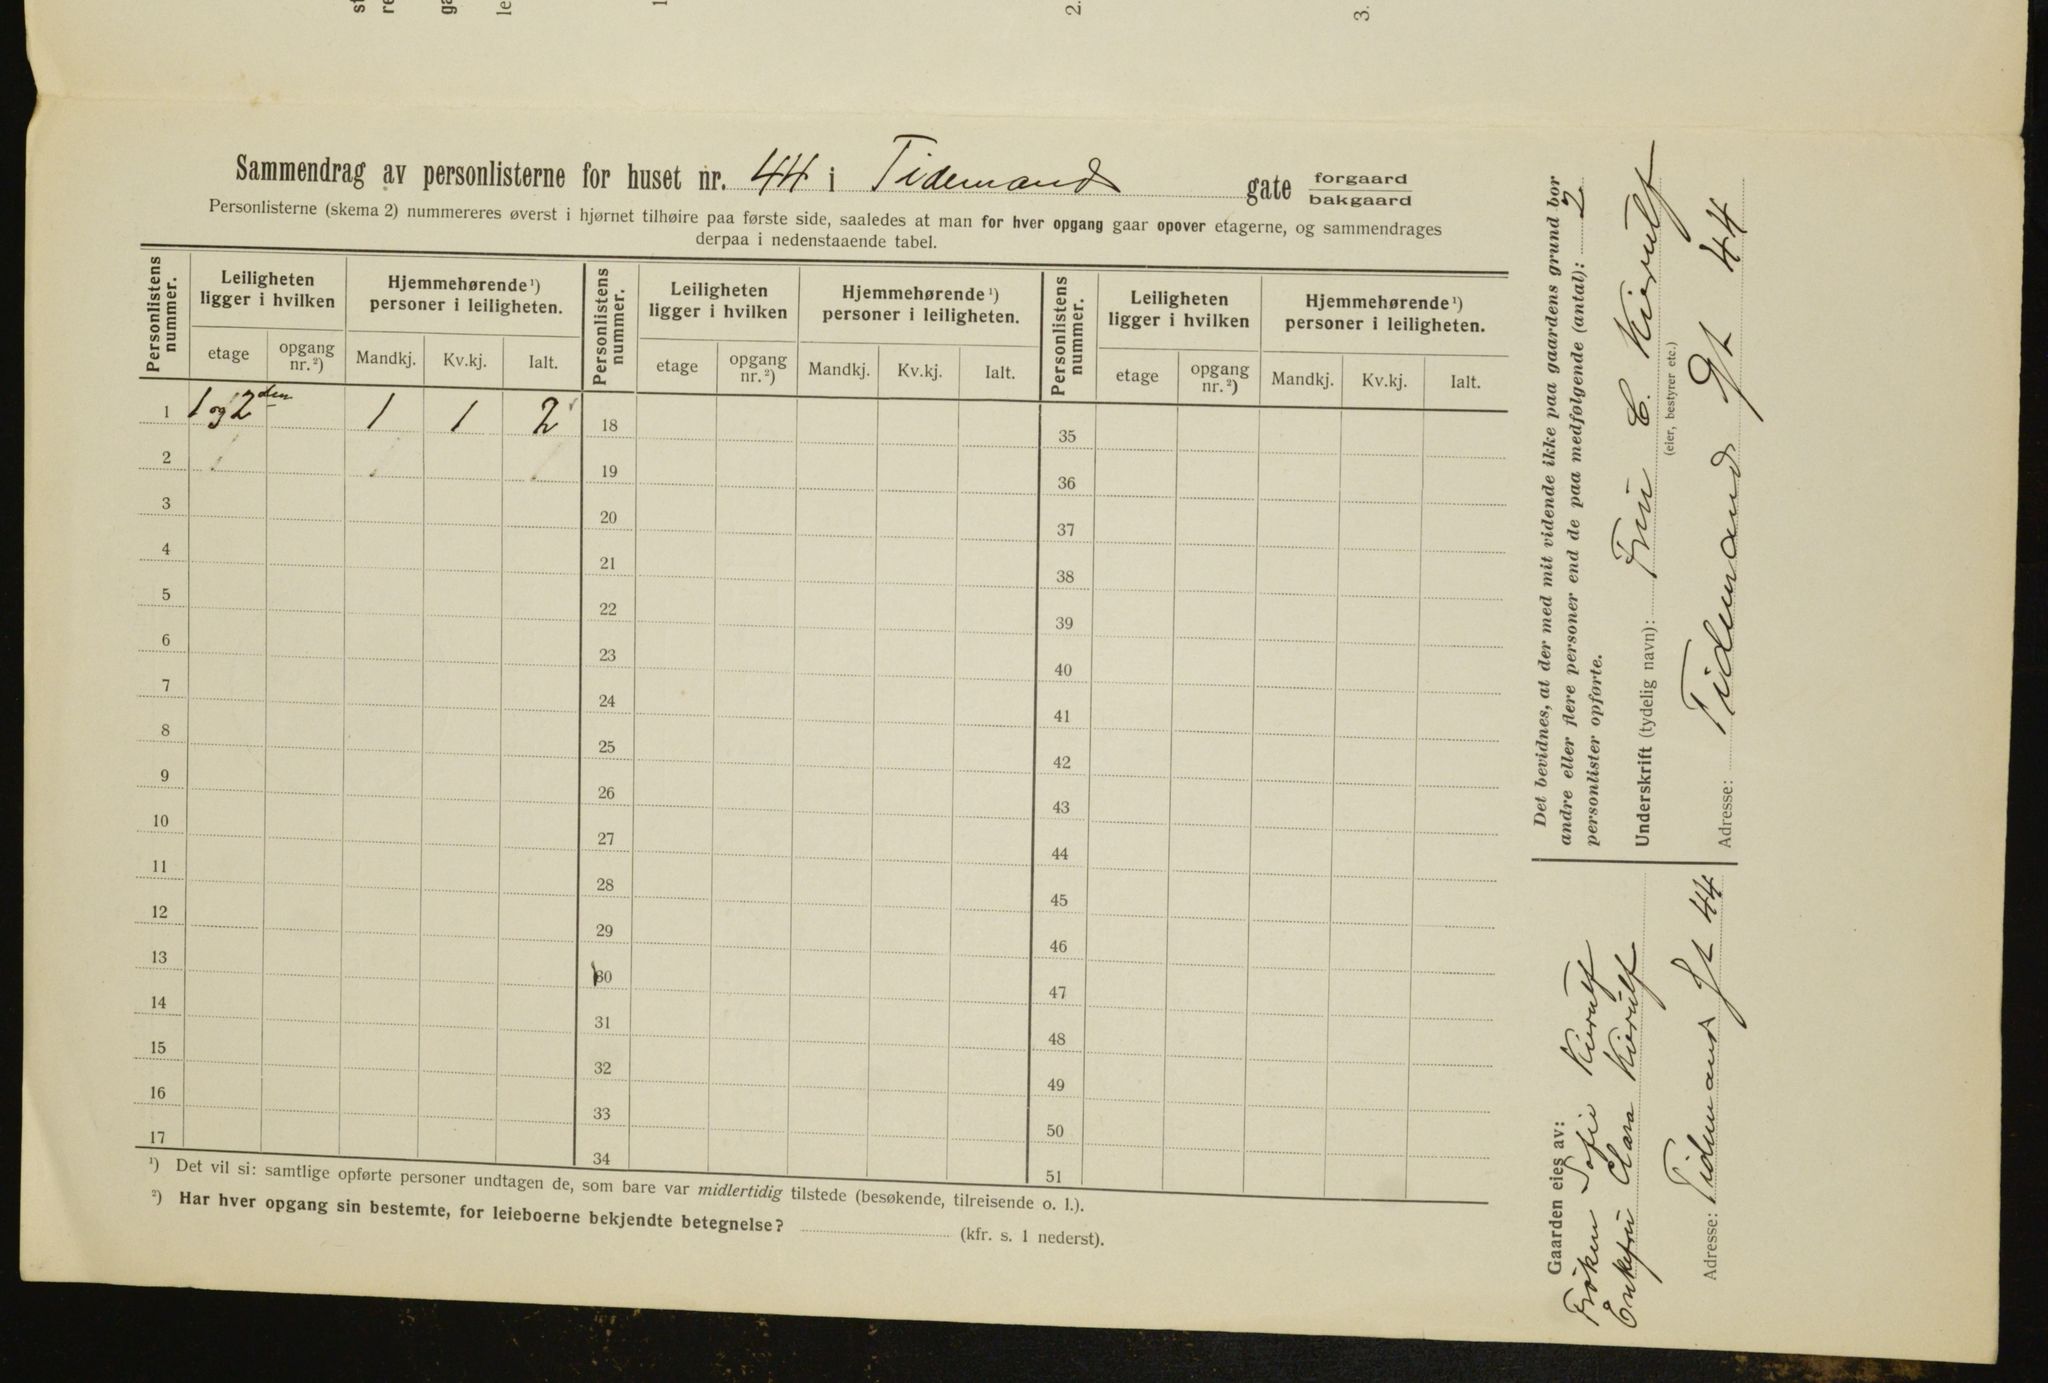 Sammendrag av personlisterne for huset nr. 44 i Tidemands gate forgaard
bakgaard
Personlisterne (skema 2) nummereres øverst i hjørnet tilhøire paa første side, saaledes at man for hver opgang gaar opover etagerne, og sammendrages
derpaa i nedenstaaende tabel.
Personlistens nummer. Leiligheten ligger i hvilken Hjemmehørende ¹) personer i leiligheten. Personlistens nummer. Leiligheten ligger i hvilken Hjemmehørende ¹) personer i leiligheten. Personlistens nummer. Leiligheten ligger i hvilken Hjemmehørende ¹) personer i leiligheten.
etage opgang nr. ²) Mandkj. Kv.kj. Ialt. etage opgang nr. ²) Mandkj. Kv.kj. Ialt. etage opgang nr. ²) Mandkj. Kv.kj. Ialt.
1 1 og 2 den 1 1 2 18 35
2 19 36
3 20 37
4 21 38
5 22 39
6 23 40
7 24 41
8 25 42
9 26 43
10 27 44
11 28 45
12 29 46
13 30 47
14 31 48
15 32 49
16 33 50
17 34 51
¹) Det vil si: samtlige opførte personer undtagen de, som bare var midlertidig tilstede (besøkende, tilreisende o. l.).
²) Har hver opgang sin bestemte, for leieboerne bekjendte betegnelse? (kfr. s. 1 nederst).
Det bevidnes, at der med mit vidende ikke paa gaardens grund bor
andre eller flere personer end de paa medfølgende (antal): 2
personlister opførte.
Underskrift (tydelig navn): Fru C. Kierulf
(eier, bestyrer etc.)
Adresse: Tidemands Gt 44
Gaarden eies av:
Frøken Sofie Kierulf
Enkefru Clara Kierulf
Adresse: Tidemands Gt 44
st
re
ga
le
1
2.
3.